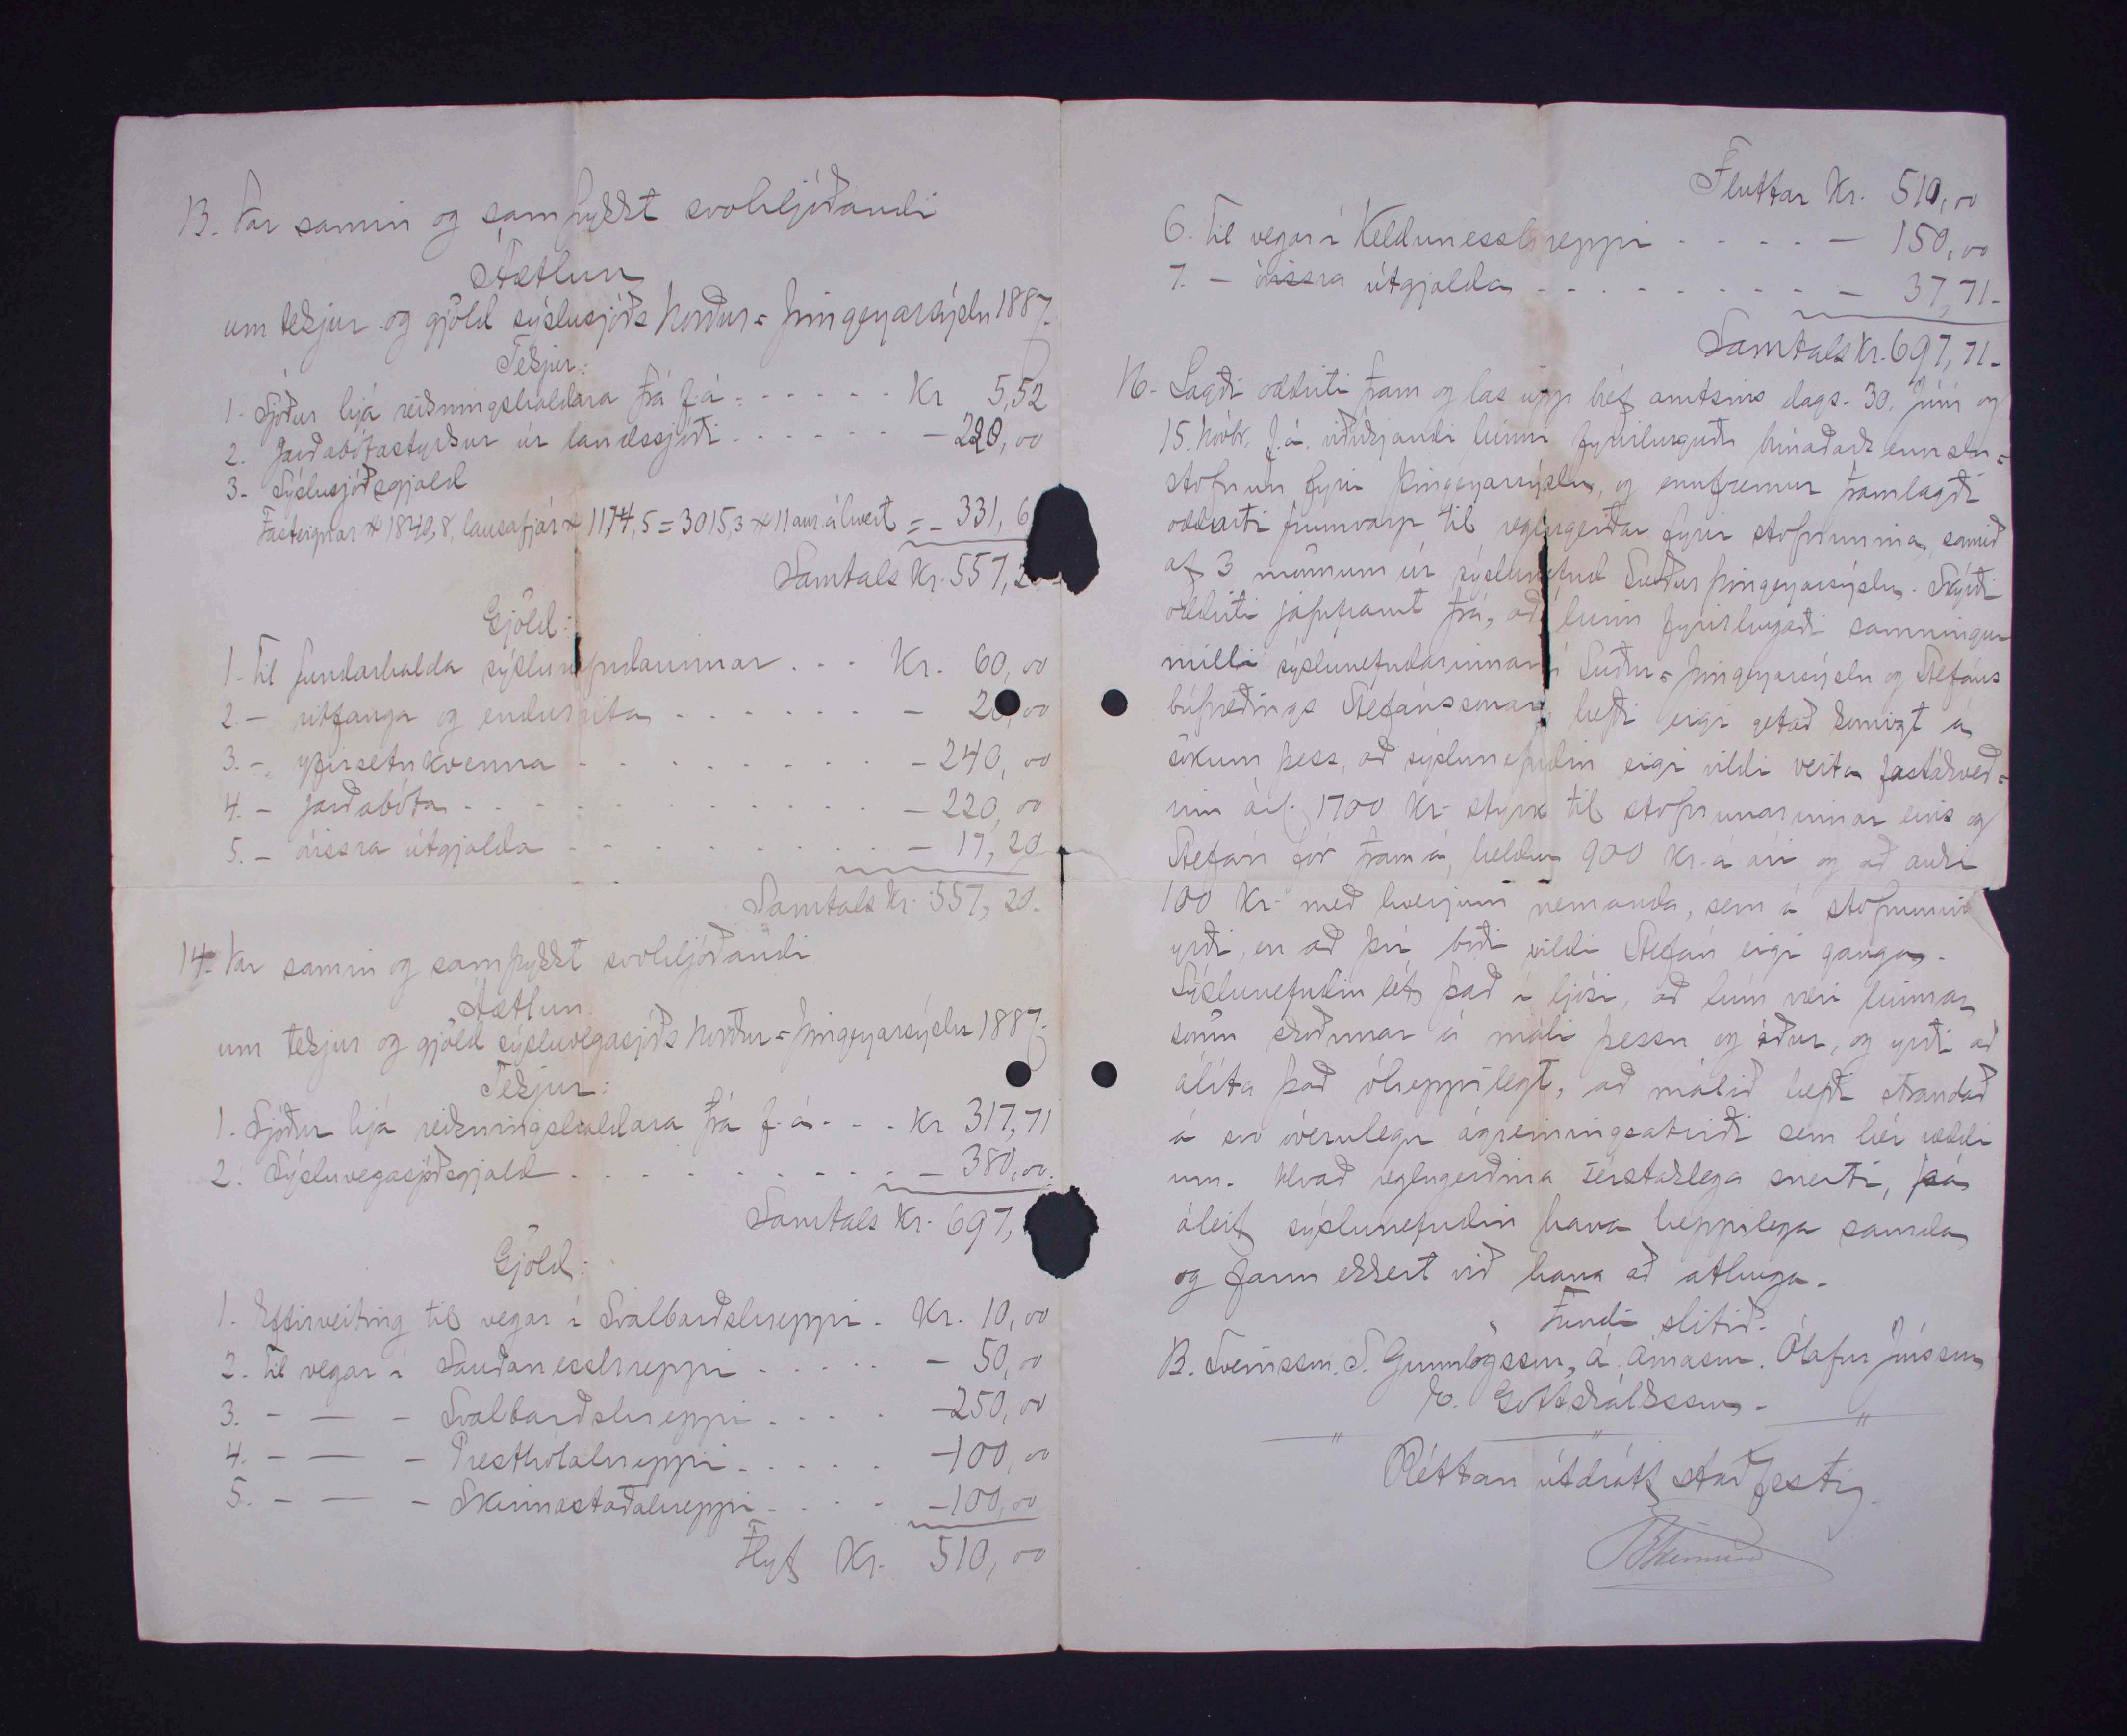 13. Var samin og samþykkt svohljóðandi
Áætlun
um tekjur og gjöld sýslusjóðs Norður-Þingeyarsýslu 1887.
Tekjur:
1. Sjóður hjá reikningshaldara frá f.á. - - - - - Kr 5,52
2. Jarðabótastyrkur úr landssjóði - - - - - - 220,00
3. Sýslusjóðsgjald
Fasteignar × 1840,8, lausafjár × 1174,5 = 3015,3 × 11 aur. álnvert = - 331,6
Samtals Kr. 557,2
Gjöld:
1. Til fundarhalda sýslunefndarinnar - - - Kr. 60,00
2. - ritfanga og endurrita - - - - - - - 20,00
3. - yfirsetukvenna - - - - - - - - 240,00
4. - jarðabóta - - - - - - - - - - 220,00
5. - óvissra útgjalda - - - - - - - - 17,20
Samtals Kr. 557,20.
14. Var samin og samþykkt svohljóðandi
Áætlun
um tekjur og gjöld sýsluvegasjóðs Norður-Þingeyarsýslu 1887.
Tekjur:
1. Sjóður hjá reikningshaldara frá f.á. - - - Kr 317,71
2. Sýsluvegasjóðsgjald - - - - - - - - 380,00.
Samtals Kr. 697,
Gjöld:
1. Eftirveiting til vegar í Svalbarðshreppi - Kr. 10,00
2. Til vegar í Sauðaneshreppi - - - - - - 50,00
3. - — - Svalbarðshreppi - - - - - 250,00
4. - — - Presthólahreppi - - - - - 100,00
5. - — - Skinnastaðahreppi - - - - 100,00
Flyt Kr. 510,00
Fluttar Kr. 510,00
6. Til vegar í Keldunesshreppi - - - - - 150,00
7. - óvissra útgjalda - - - - - - - - - 37,71.
Samtals Kr. 697,71.
16. Lagði oddviti fram og las upp bréf amtsins dags. 30. júní og
15. Nóvbr. f.á. viðvíkjandi hinni fyrirhuguðu búnaðarkennslu-
stofnun fyrir Þingeyarsýslu, og ennfremur framlagði
oddviti frumvarp til reglugerðar fyrir stofnunina, samið
af 3 mönnum úr sýslunefnd Suður Þingeyarsýslu. Skýrði
oddviti jafnframt frá, að hinn fyrirhugaði samningur
milli sýslunefndarinnar í Suður-Þingeyarsýslu og Stefáns
búfræðings Stefánssonar hefði eigi getað komizt á
sökum þess, að sýslunefndin eigi vildi veita fastákveð-
inn árl. 1700 Kr. styrk til stofnunarinnar eins og
Stefán fór fram á, heldur 900 Kr. á ári og að auki
100 Kr. með hverjum nemanda, sem á stofnunni
yrði, en að því boði vildi Stefán eigi ganga.
Sýslunefndin lét það í ljósi, að hún væri hinnar
sömu skoðunar á máli þessu og áður, og yrði að
álíta það óheppilegt, að málið hefði strandað
á svo óverulegu ágreiningsatriði sem hér ræddi
um. Hvað reglugerðina sérstaklega snerti, þá
áleit sýslunefndin hana heppilega samda
og fann ekkert við hana að athuga.
Fundi slitið.
B. Sveinsson. S. Gunnlögsson, Á. Árnason. Ólafur Jónsson
E. Gottskálksson.
Réttan útdrátt staðfestir